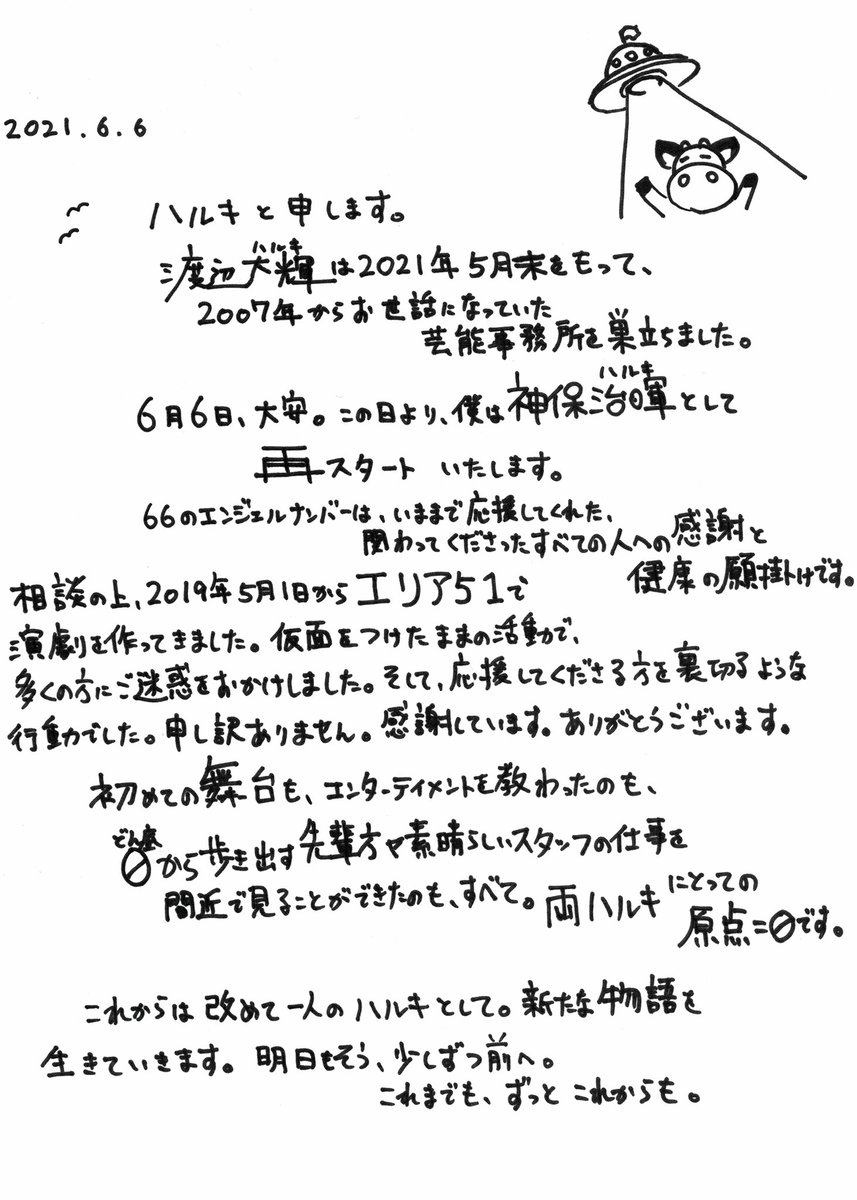 2021.6.6
ハルキと申します。
ハルキ
渡辺大輝は2021年5月末をもって、
2007年からお世話になっていた
芸能事務所を巣立ちました。
ハルキ
6月6日、大安。この日より、僕は神保治暉として
再スタート いたします。
66のエンジェルナンバーは、いままで応援してくれた、
関わってくださったすべての人への感謝と
健康の願掛けです。
相談の上、2019年5月1日からエリア51で
演劇を作ってきました。仮面をつけたままの活動で、
多くの方にご迷惑をおかけしました。そして、応援してくださる方を裏切るような
行動でした。申し訳ありません。感謝しています。ありがとうございます。
初めての舞台も、エンターテイメントを教わったのも、
どん底
0から歩き出す先輩方や素晴らしいスタッフの仕事を
間近で見ることができたのも、すべて。両ハルキにとっての
原点=0です。
これからは改めて一人のハルキとして。新たな物語を
生きていきます。明日もそう、少しずつ前へ。
これまでも、ずっとこれからも。